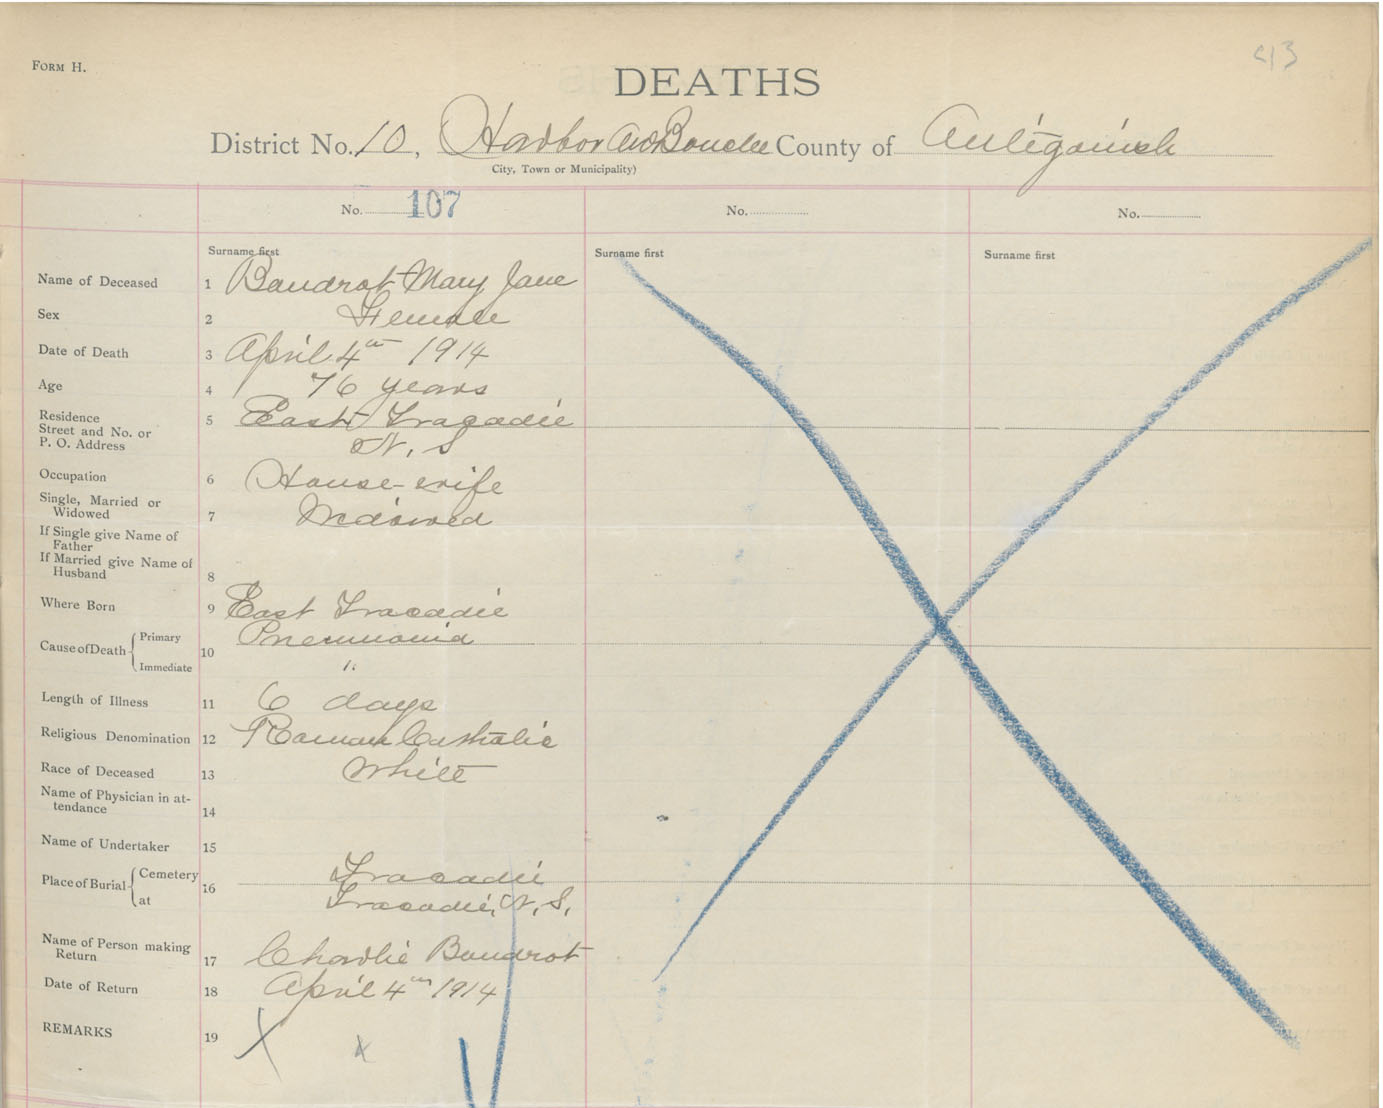 FORM H.
DEATHS
District No. 10, Harbor au Bouche County of Antigonish
City, Town or Municipality)
No. 107 No. No.
Surname first Surname first Surname first
Name of Deceased 1 Baudrot Mary Jane
Sex 2 Female
Date of Death 3 April 4th 1914
Age 4 76 years
Residence
Street and No. or
P. O. Address 5 East Tracadie
N. S
Occupation 6 House-wife
Single, Married or
Widowed 7 Widowed
If Single give Name of
Father
If Married give Name of
Husband 8
Where Born 9 East Tracadie
Cause of Death Primary 10 Pneumonia
Immediate "
Length of Illness 11 6 days
Religious Denomination 12 Roman Catholic
Race of Deceased 13 White
Name of Physician in at-
tendance 14
Name of Undertaker 15
Place of Burial Cemetery 16 Tracadie
at Tracadie, N. S.
Name of Person making
Return 17 Charlie Baudrot
Date of Return 18 April 4th 1914
REMARKS 19 X x